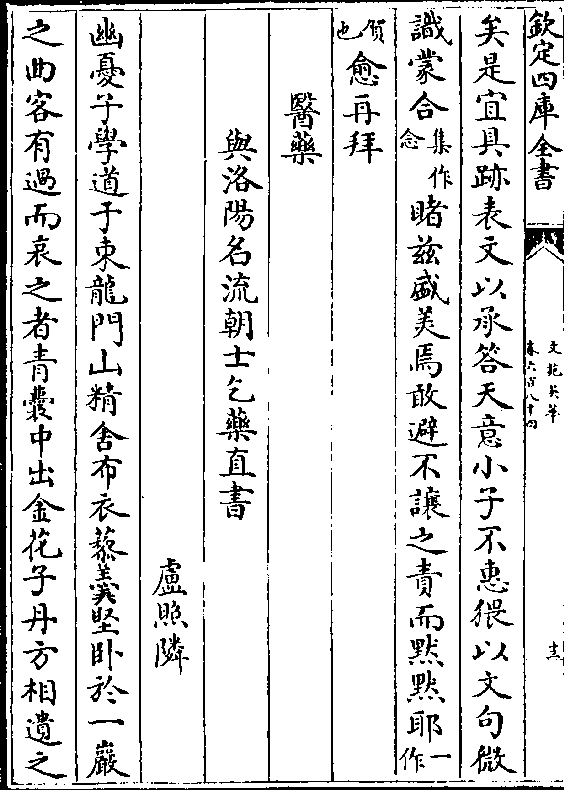 欽定四庫全書
文苑英華
卷六百八十四
十三
矣是宜具跡表文以承答天意小子不惠猥以文句微
識蒙合集作念睹玆盛美焉敢避不讓之責而默默耶一作
質也愈再拜
醫藥
與洛陽名流朝士乞藥直書
盧照隣
幽憂子學道于東龍門山精舍布衣藜羹堅卧於一巖
之曲客有過而哀之者青囊中出金花子丹方相遺之